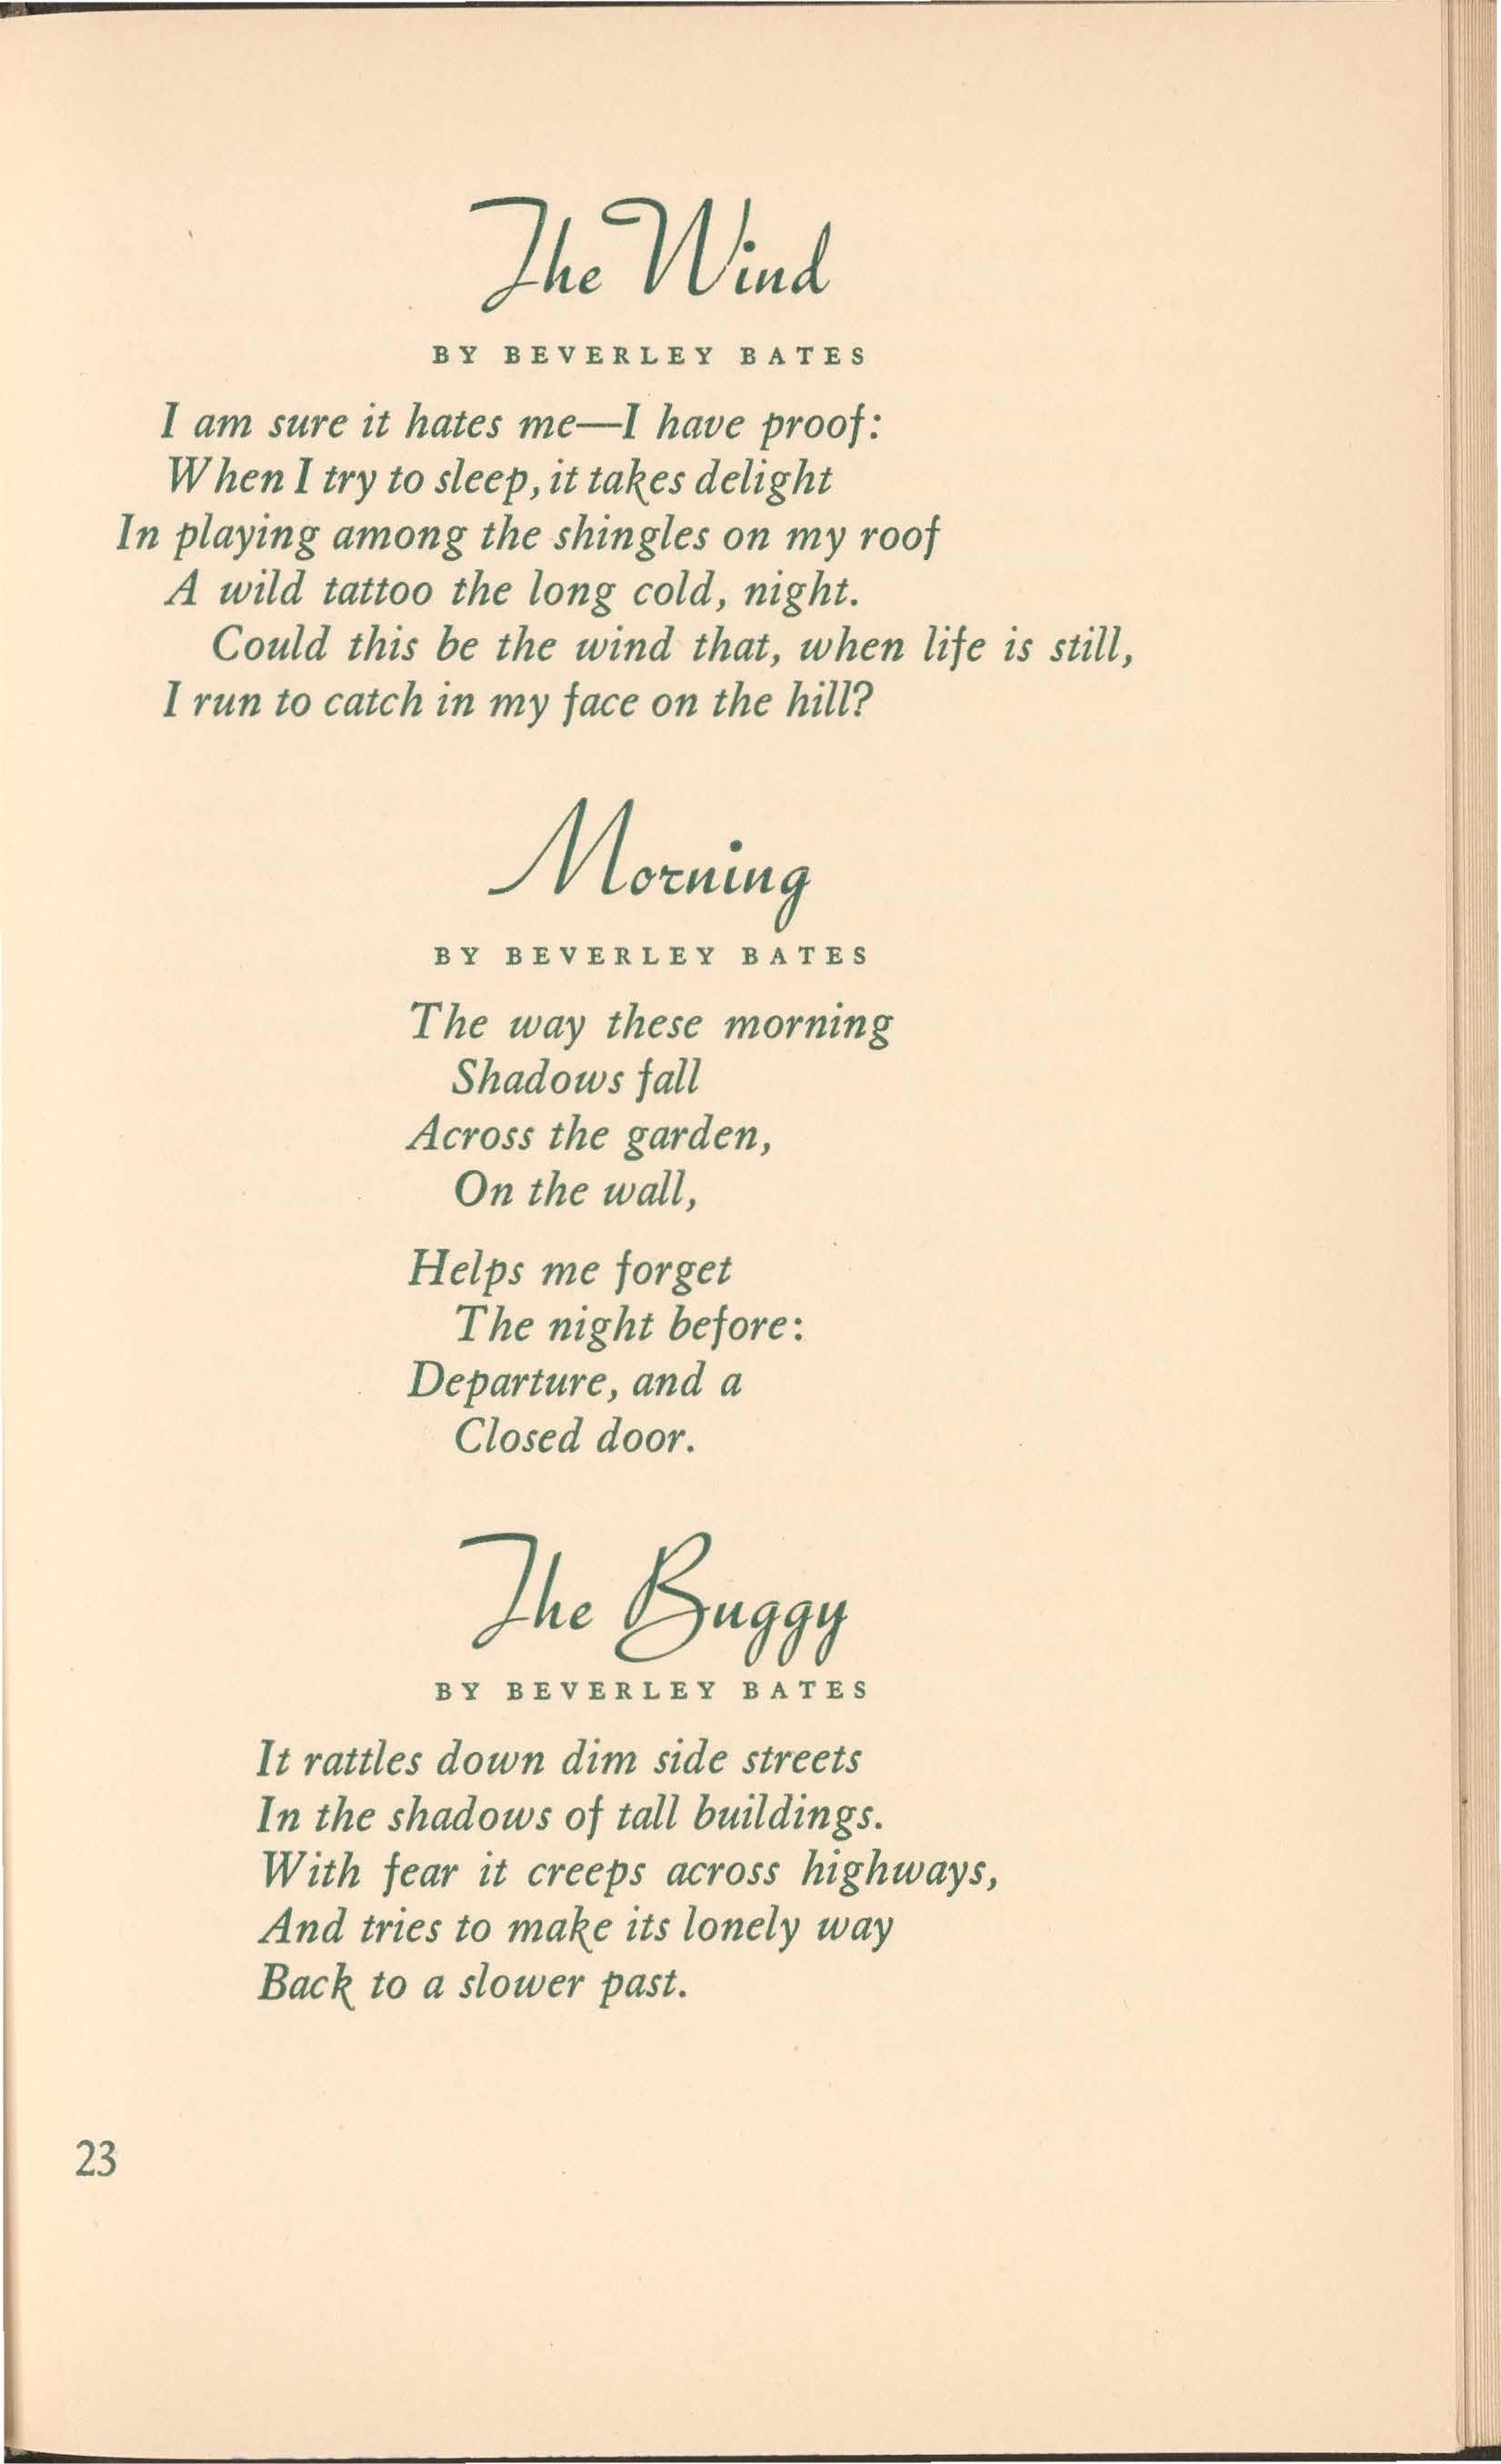 The Wind
BY BEVERLEY BATES
I am sure it hates me—I have proof:
When I try to sleep, it takes delight
In playing among the shingles on my roof
A wild tattoo the long cold, night.
Could this be the wind that, when life is still,
I run to catch in my face on the hill?
Morning
BY BEVERLEY BATES
The way these morning
Shadows fall
Across the garden,
On the wall,
Helps me forget
The night before:
Departure, and a
Closed door.
The Buggy
BY BEVERLEY BATES
It rattles down dim side streets
In the shadows of tall buildings.
With fear it creeps across highways,
And tries to make its lonely way
Back to a slower past.
23